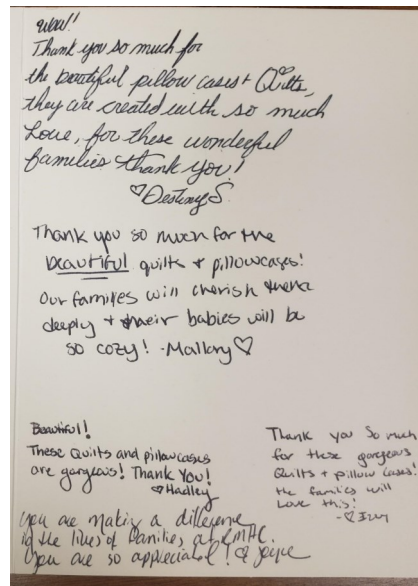 Wow!
Thank you so much for
the beautiful pillow cases + Quilts,
they are created with so much
Love, for these wonderful
families thank you!
♡Destiny S.
Thank you so much for the
beautiful quilts + pillowcases!
Our families will cherish them
deeply + their babies will be
so cozy! -Mallory ♡
Beautiful!
These Quilts and pillowcases
are gorgeous! Thank You!
♡Hadley
Thank you so much
for these gorgeous
Quilts + pillow cases!
the families will
Love this!
-♡
you are making a difference
in the lives of families at RMHC.
You are so appreciated! ♡ Joyce